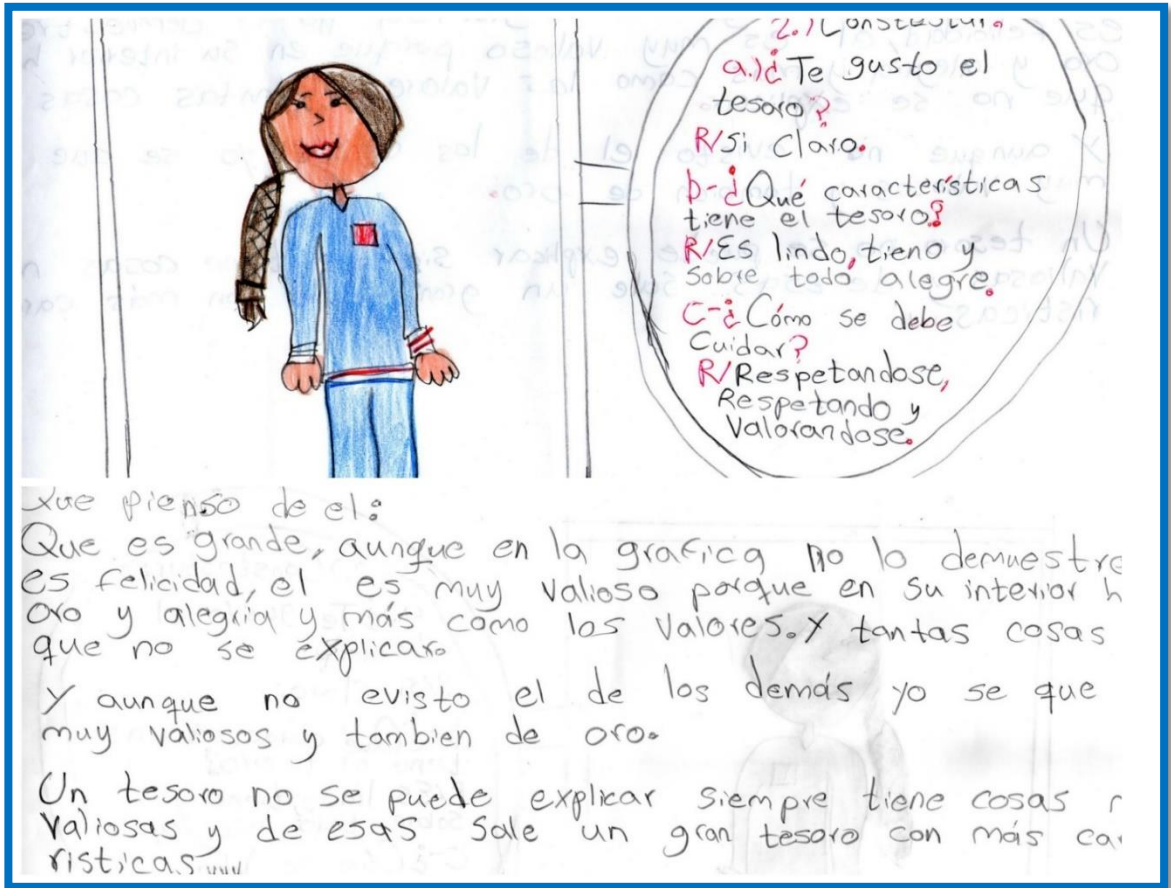 2.) Constestar.
a.)¿ Te gusto el
tesoro?
R/Si claro.
b-¿Qué características
tiene el tesoro?
R/Es lindo, tieno y
sobre todo, alegre.
c-¿Cómo se debe
Cuidar?
R/Respetandose,
Respetando y
Valorandose.
Que pienso de el:
Que es grande, aunque en la grafica no lo demuestre
es felicidad, el es muy valioso porque en su interior h
oro y alegría y más como los valores. Y tantas cosas
que no se explicar.
Y aunque no evisto el de los demás yo se que
muy valiosos y tambien de oro.
Un tesoro no se puede explicar siempre tiene cosas
valiosas y de esas sale un gran tesoro con más ca
risticas